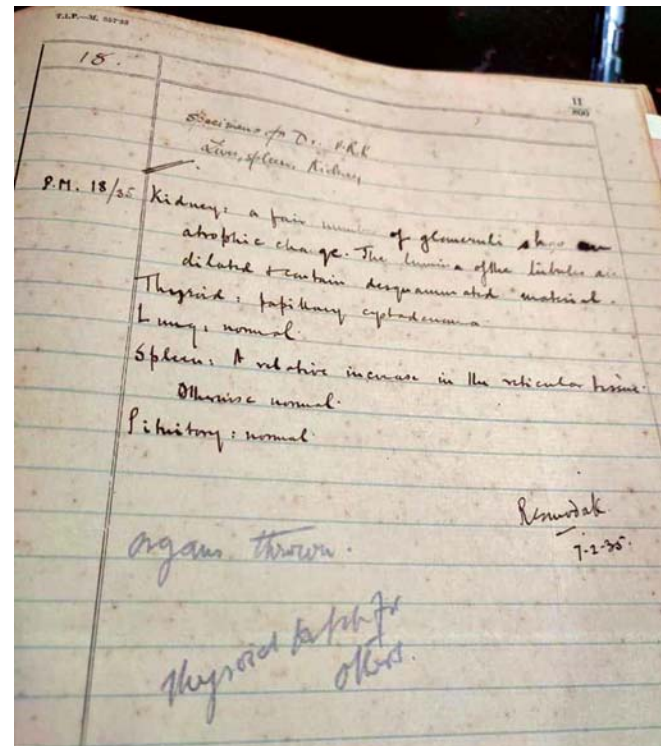 T.I.P.—M.
18.
11
800
Specimens of Dr. V.R.K
Liver, spleen, Kidney
P.M. 18/35 Kidney: a fair number of glomeruli show an
atrophic change. The lumina of the tubules are
dilated & contain desquamated material.
Thyroid: papillary cystadenoma
Lung: normal.
Spleen: A relative increase in the reticular tissue.
Otherwise normal.
Pituitory: normal
7-2-35.
organs thrown.
Thyroid kept for
others.